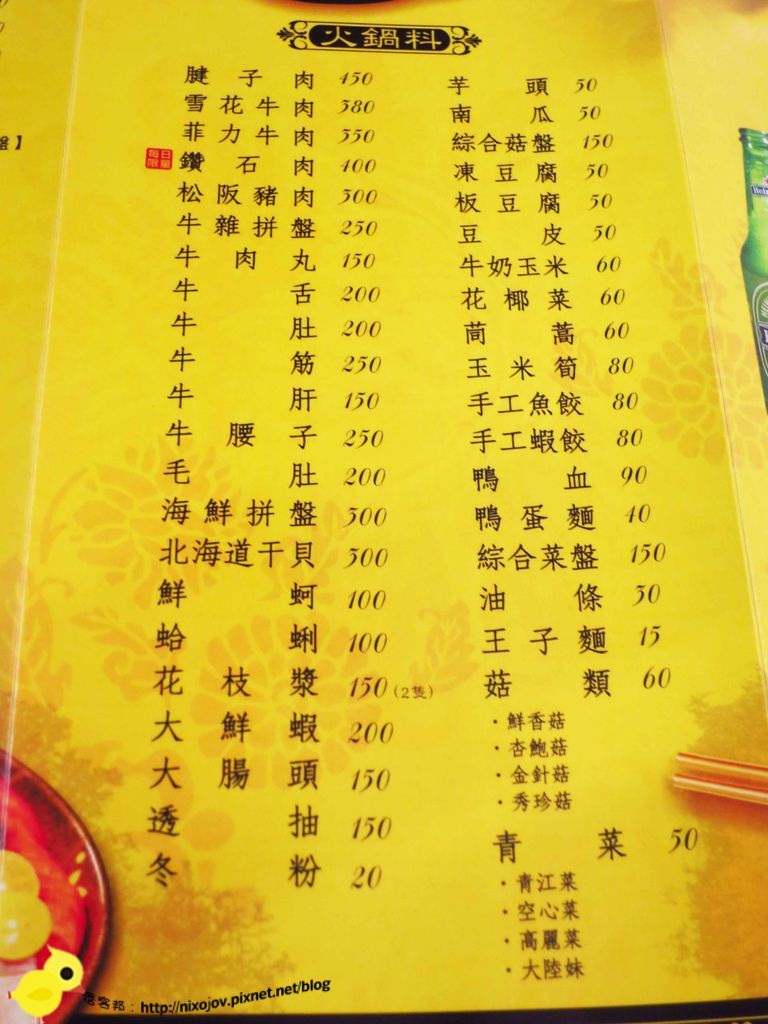 火鍋料
腱子肉 450
雪花牛肉 380
菲力牛肉 350
每日限量 鑽石肉 400
松阪豬肉 300
牛雜拼盤 250
牛肉丸 150
牛舌 200
牛肚 200
牛筋 250
牛肝 150
牛腰子 250
毛肚 200
海鮮拼盤 300
北海道干貝 300
鮮蚵 100
蛤蜊 100
花枝漿 150
大鮮蝦 200 (2隻)
大腸頭 150
透抽 150
冬粉 20
芋頭 50
南瓜 50
綜合菇盤 150
凍豆腐 50
板豆腐 50
豆皮 50
牛奶玉米 60
花椰菜 60
茼蒿 60
玉米筍 80
手工魚餃 80
手工蝦餃 80
鴨血 90
鴨蛋麵 40
綜合菜盤 150
油條 30
王子麵 15
菇類 60
·鮮香菇
·杏鮑菇
·金針菇
·秀珍菇
青菜 50
·青江菜
·空心菜
·高麗菜
·大陸妹
盤】
痞客邦：http://nixojov.pixnet.net/blog